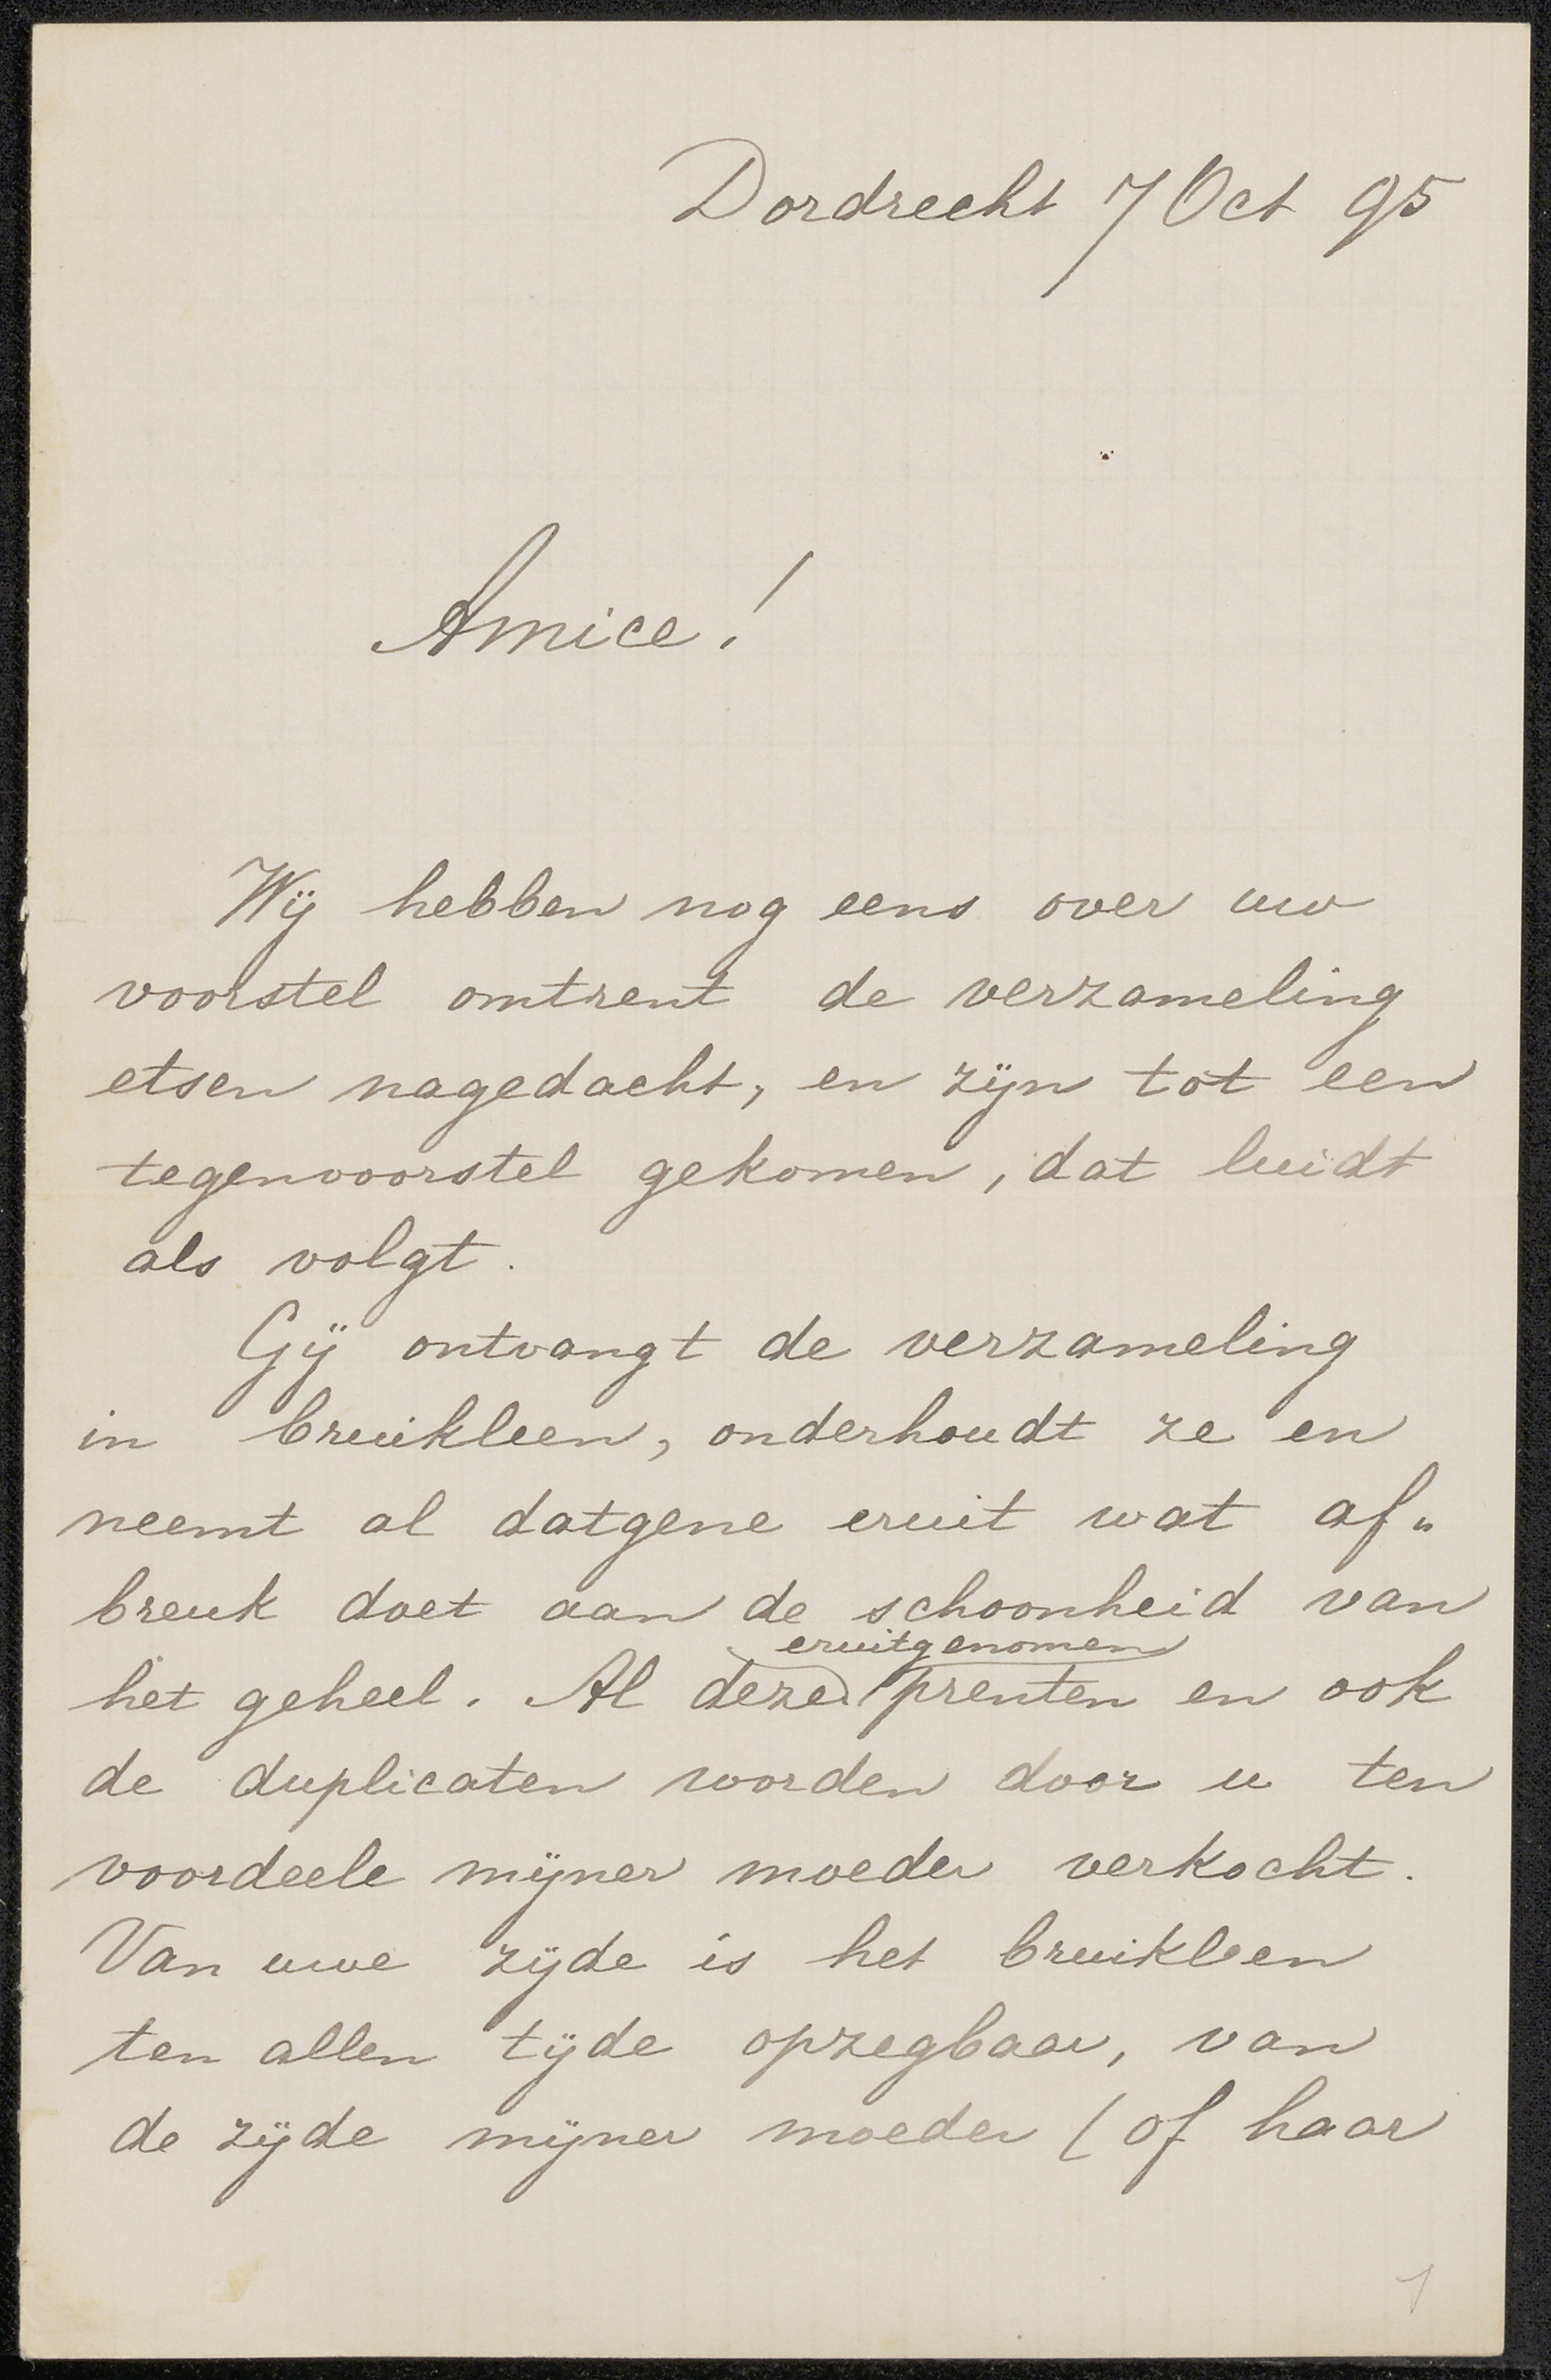 Dordrecht 7 Oct 95
Amice!
Wij hebben nog eens over uw
voorstel omtrent de verzameling
etsen nagedacht, en zijn tot een
tegenvoorstel gekomen, dat luidt
als volgt.
Gij ontvangt de verzameling
in bruikleen, onderhoudt ze en
neemt al datgene eruit wat af„
breuk doet aan de schoonheid van
eruitgenomen
het geheel. Al deze prenten en ook
de duplicaten worden door u ten
voordeele mijner moeder verkocht.
Van uwe zijde is het bruikleen
ten allen tijde opzegbaar, van
de zijde mijner moeder (of haar
1